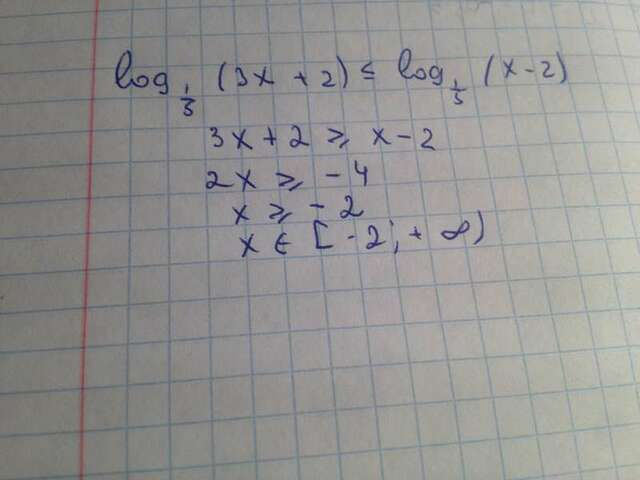 log_{1/3} (3x + 2) ≤ log_{1/3} (x - 2)
3x + 2 ⩾ x - 2
2x ⩾ - 4
x ⩾ - 2
x ∈ [-2; + ∞)